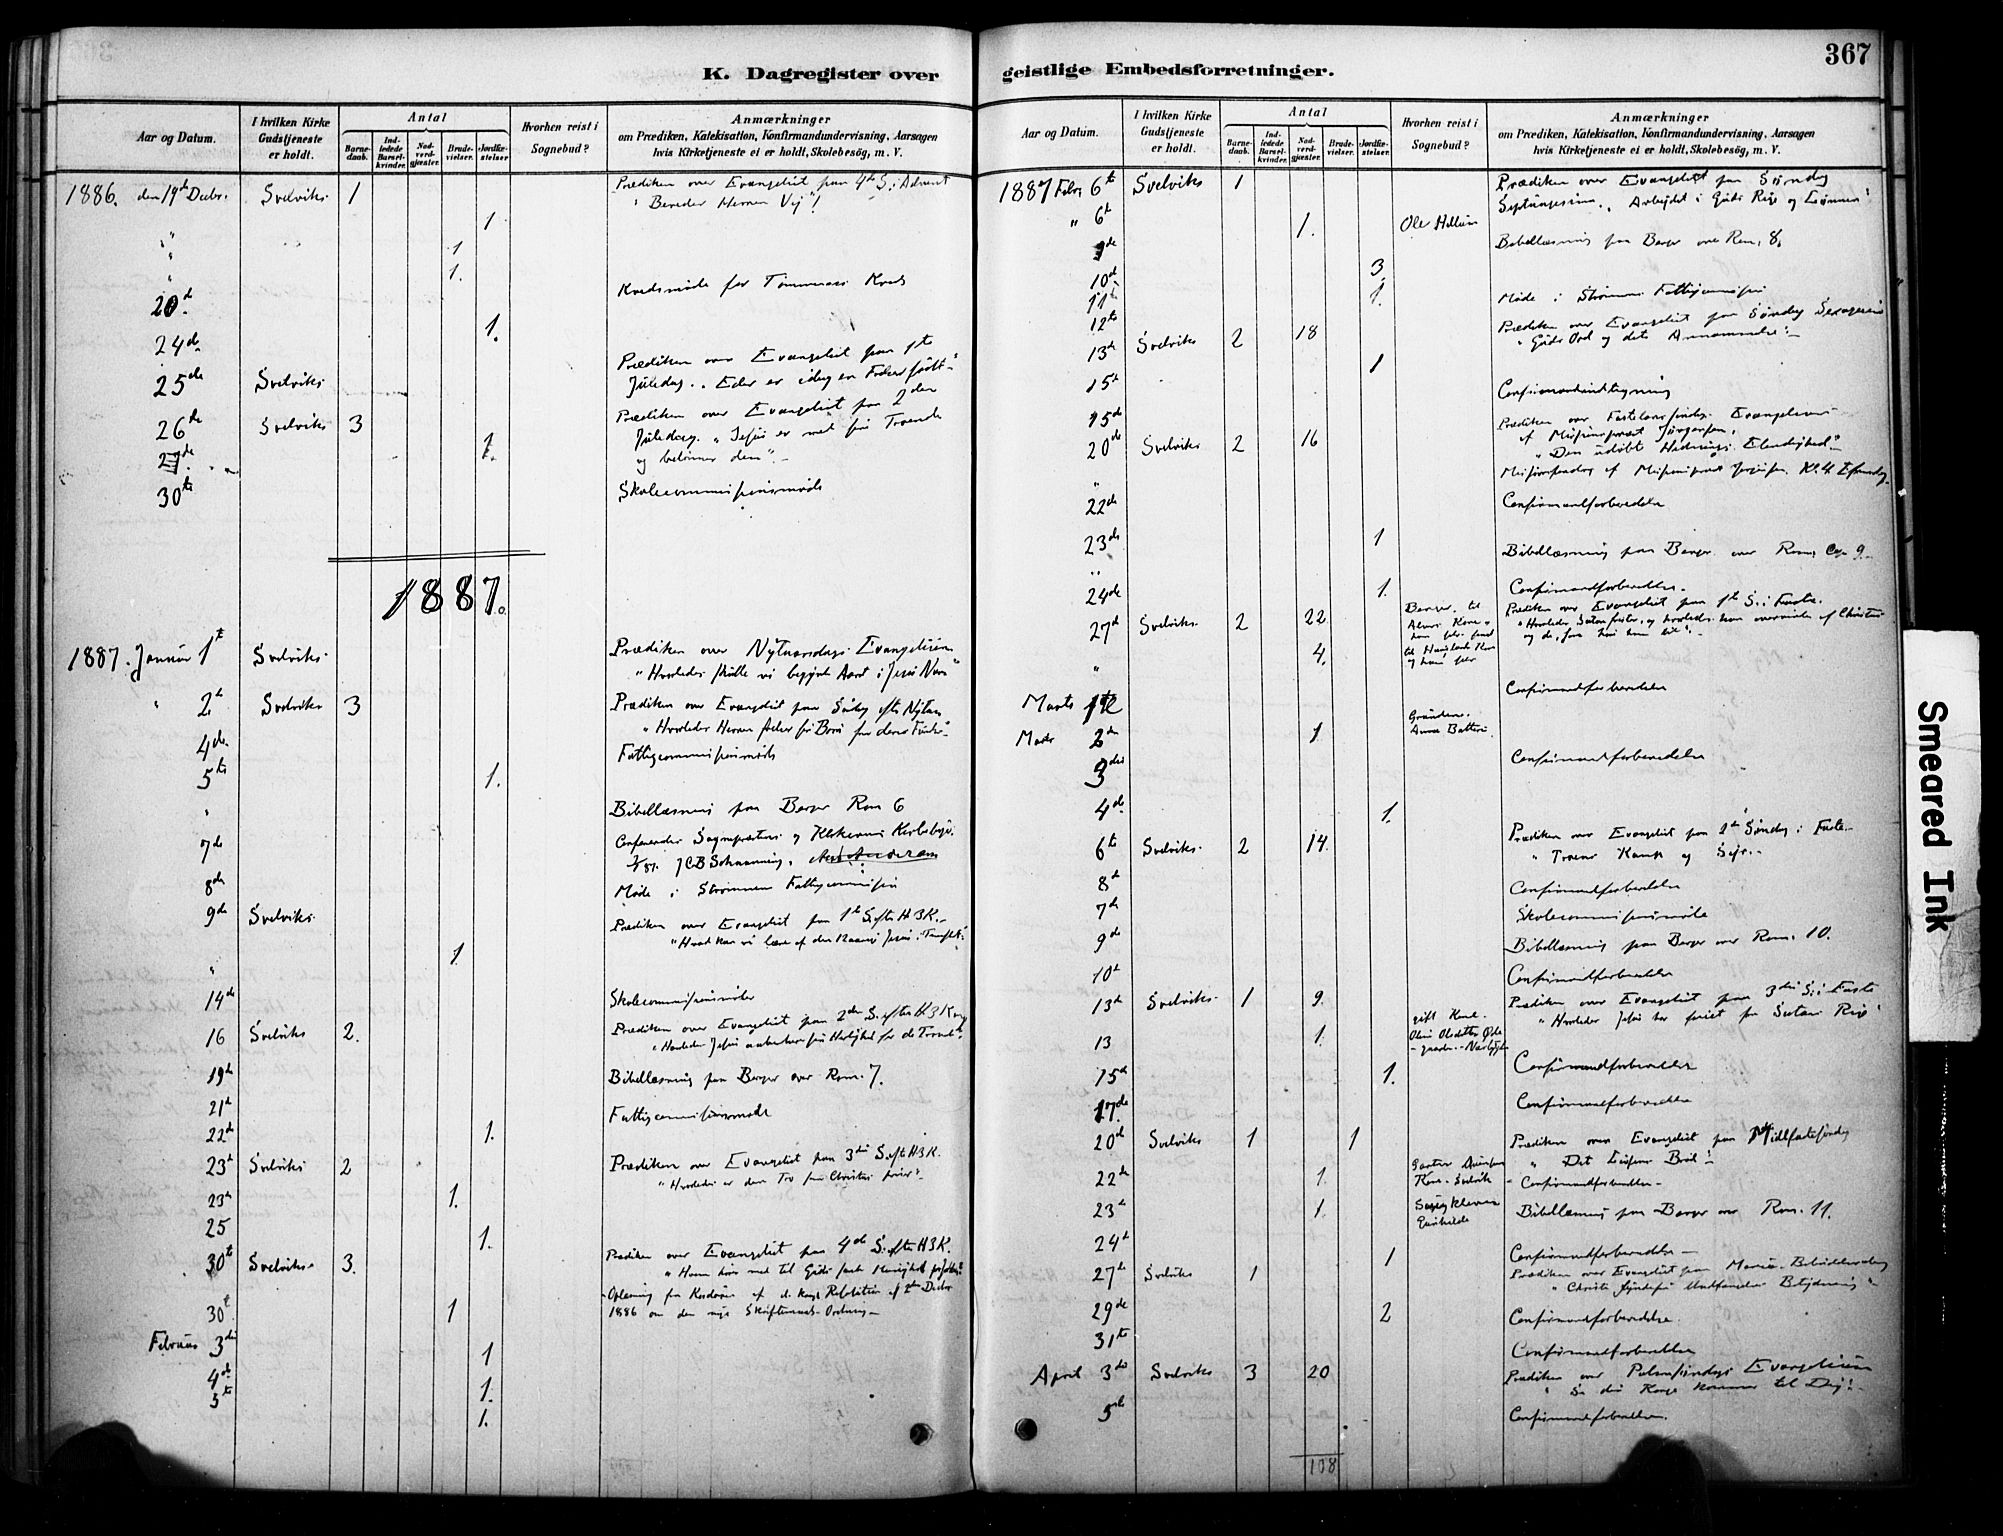 367
K. Dagregister over
geistlige Embedsforretninger.
Aar og Datum.
I hvilken Kirke Gudstjeneste er holdt.
Antal
Barnedaab.
Indledede Barselkvinder.
Nadverdgjester.
Brudevielser.
Jordfæstelser.
Hvorhen reist i Sognebud?
Anmærkninger
om Prædiken, Katekisation, Konfirmandundervisning, Aarsagen
hvis Kirketjeneste ei er holdt, Skolebesög, m. V.
1886. den 19de Decbr. Svelviks 1 Prædiken over Evangeliet paa 4de S. i Advent
"Bereder Herren Vej"!
1
" 1
" 1.
20de Kredsmøde for Tømmeraas Kreds
24de 1.
25de Svelviks Prædiken over Evangeliet paa 1ste
Juledag. "Eder er idag en Frelser født"
26de Svelviks 3 Prædiken over Evangeliet paa 2den
Juledag. "Jesus er med sine Troende
og belønner dem".
27de 1.
30te Skolecommissionsmøde
1887.
1887. Januar 1te Svelviks Prædiken over Nytaarsdags Evangelium
"Hvorledes skulle vi begynde Aaret i Jesu Navn"
" 2de Svelviks 3 Prædiken over Evangeliet paa Søndag efter Nytaar
4de Fattigcommissionsmøde
5te 1.
" Bibellæsning paa Berger Rom 6
7de
J C B Schanning.
8de Møde i Strømmen Fattigcommission
9de Svelviks Prædiken over Evangeliet paa 1ste S. efter H3K.
"Hvad kan vi lære af den Jesus i Templet"
" 1
14de Skolecommissionsmøde
16 Svelviks 2. Prædiken over Evangeliet paa 2den S. efter H3K
"Hvorledes Jesus aabenbarer sin Herlighed for de Troende".
19de Bibellæsning paa Berger over Rom. 7.
21de Fattigcommissionsmøde
22de 1.
23de Svelviks 2 Prædiken over Evangeliet paa 3die S. efter H3K.
"Hvorledes er den Tro som Christus priser".
23de 1.
25 1.
30te Svelviks 3. Prædiken over Evangeliet paa 4de S. efter H3K.
Oplæsning fra Kordøren af d. kongl Resolution af 2den Decbr
30te 1 1886 om den nye Skriftemaals-Ordning
Februar 3die 1
4de 1.
5te 1.
Aar og Datum.
I hvilken Kirke Gudstjeneste er holdt.
Antal
Barnedaab.
Indledede Barselkvinder.
Nadverdgjester.
Brudevielser.
Jordfæstelser.
Hvorhen reist i Sognebud?
Anmærkninger
om Prædiken, Katekisation, Konfirmandundervisning, Aarsagen
hvis Kirketjeneste ei er holdt, Skolebesög, m. V.
1887 Febr 6te Svelviks 1 Prædiken over Evangeliet paa Søndag
Septuagesima. "Arbejdet i Guds Rige og Lønnen"
" 6te 1. Ole
9de Bibellæsning paa Berger over Rom. 8.
10de 3.
11te 1.
12te Møde i Strømmens Fattigcommission
13de Svelviks 2 18 Prædiken over Evangeliet paa Søndag Sexagesima
"Guds Ord og dets Annammelse"
15de 1
15de Confirmandindtegning
20de Svelviks 2 16 Prædiken over Fastelavnssøndags Evangelium
af Missionsprest Jørgensen.
"Den udøbte Hednings Elendighed"
" Missionsforedrag af Missionsprest Jørgensen Kl. 4 Eftermidag
22de Confirmandforberedelse
23de 1
" Bibellæsning paa Berger over Rom. Cap 9.
24de 1. Confirmandforberedelse.
27de Svelviks 2 22 Berger til Prædiken over Evangeliet paa 1ste S. i Faste.
" 4.
Marts 1ste Confirmandforberedelse
Marts 2den 1 Grunden. Anne
3die Confirmandforberedelse
4de 1.
6te Svelviks 2 14. Prædiken over Evangeliet paa 2den Søndag i Faste
"Troens Kamp og Sejr"
8de Confirmandforberedelse
7de Skolecommissionsmøde
9de Bibellæsning paa Berger over Rom. 10.
10de Confirmandforberedelse
13de Svelviks 1 9. Prædiken over Evangeliet paa 3die S. i Faste
"Hvorledes Jesus har sejret for Satans Rige"
13 1. gift Kone.
15de 1. Confirmandforberedelse
17de Confirmandforberedelse
20de Svelviks 1 1 Prædiken over Evangeliet paa Midfastesøndag
"Det Livsens Brød"
22de 1. Kone - Svelvik Confirmandforberedelse
23de 1. Bibellæsning paa Berger over Rom. 11.
24de 1 Confirmandforberedelse
27de Svelviks 1 Prædiken over Evangeliet paa Mariæ Bebudelsesdag
29de 2 Confirmandforberedelse.
31te Confirmandforberedelse
April 3die Svelviks 3 20 Prædiken over Palmesøndags Evangelium
"Se din Konge kommer til Dig"
5te Confirmandforberedelse.
108
Smeared Ink